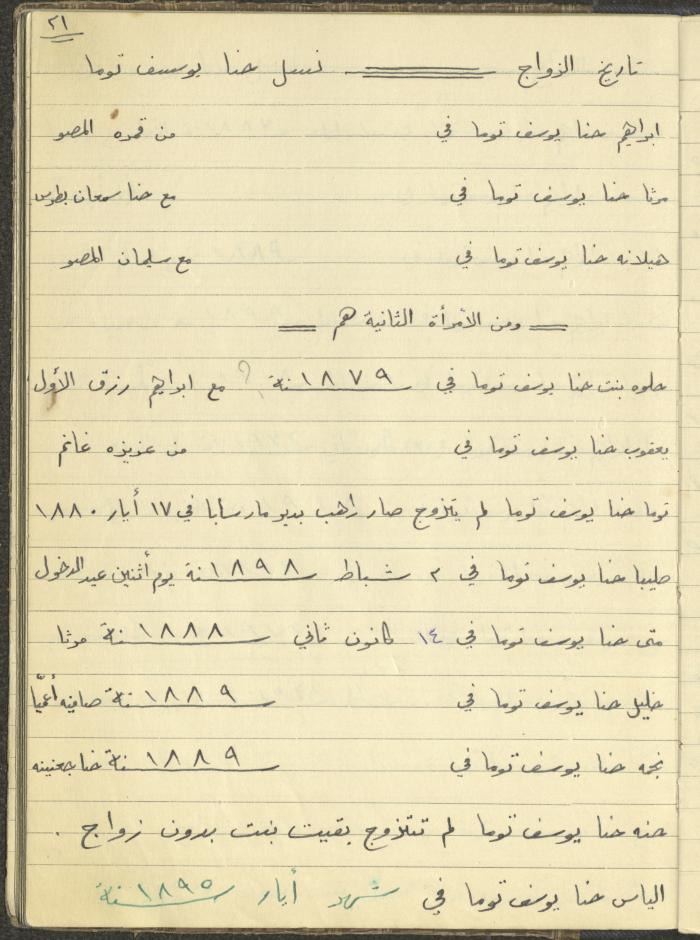 ٢١
تاريخ الزواج نسل حنا يوسف توما
ابراهيم حنا يوسف توما في من قمره المصو
مرثا حنا يوسف توما في مع حنا سمعان بطرس
هيلانه حنا يوسف توما في مع سليمان المصو
ومن الأمرأة الثانية هم
حلوه بنت حنا يوسف توما في سنة ١٨٧٩ ? مع ابراهيم رزق الأول
يعقوب حنا يوسف توما في من عزيزه غانم
توما حنا يوسف توما لم يتزوج صار راهب بدير مار سابا في ١٧ أيار ١٨٨٠
صليبا حنا يوسف توما في ٢ شباط سنة ١٨٩٨ يوم أثنين عيد الدخول
متى حنا يوسف توما في ١٤ كانون ثاني سنة ١٨٨٨ مرثا
خليل حنا يوسف توما في سنة ١٨٨٩ صافيه
نجمه حنا يوسف توما في سنة ١٨٨٩ حنا جعنينه
حنه حنا يوسف توما لم تتزوج بقيت بنت بدون زواج .
الياس حنا يوسف توما في شهر أيار سنة ١٨٩٥